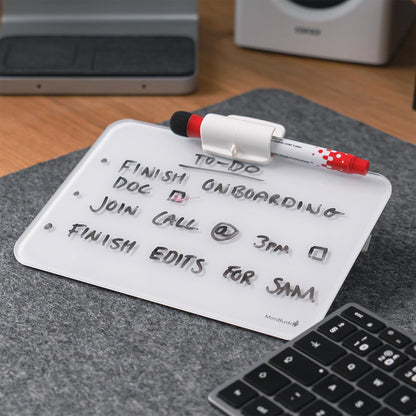 TO-DO
FINISH ONBOARDING
DOC
JOIN CALL @ 3PM
FINISH EDITS FOR SAM